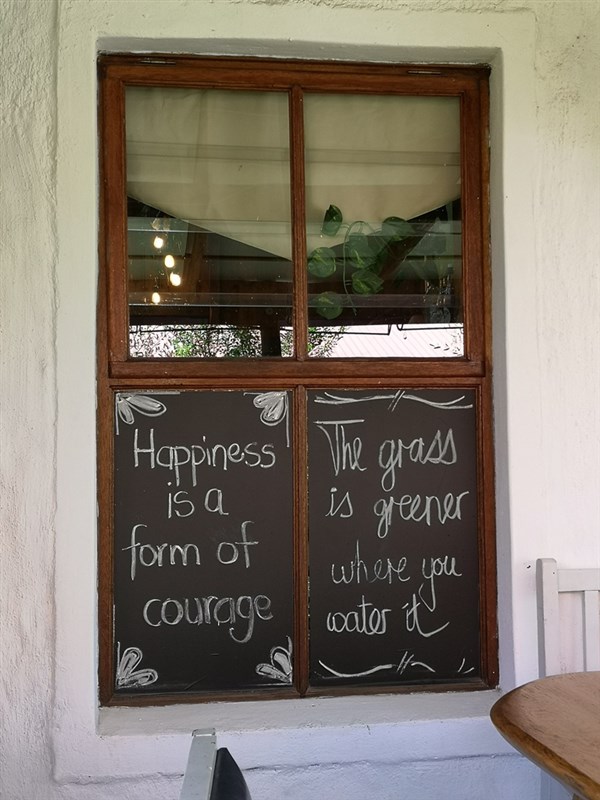 Happiness
is a
form of
courage
The grass
is greener
where you
water it